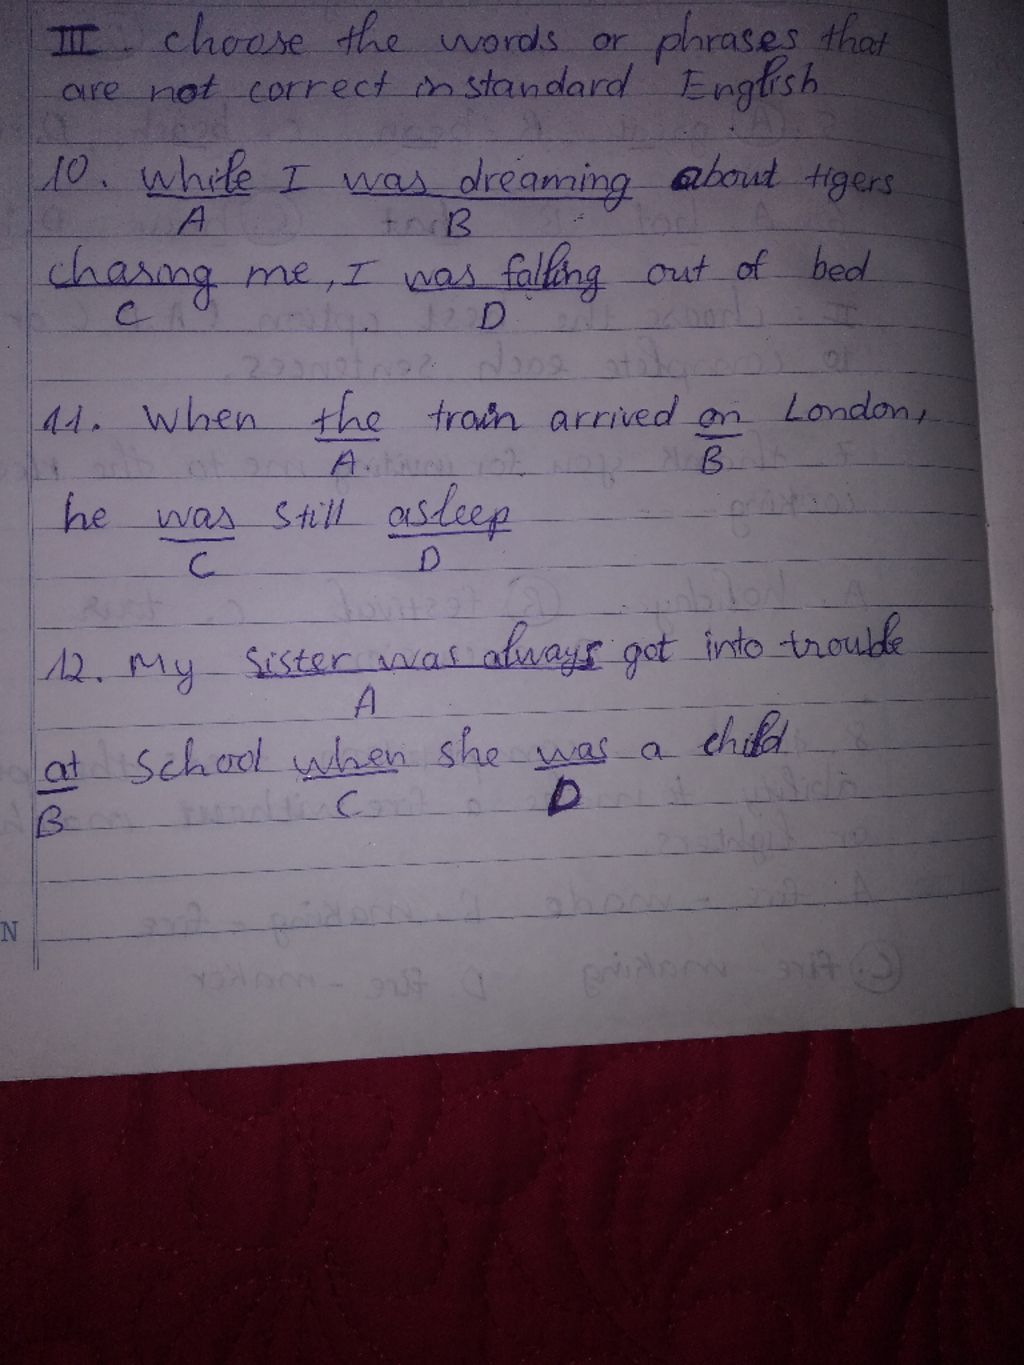 III. choose the words or phrases that
are not correct in standard English
10. While I was dreaming about tigers
A B
chasing me, I was falling out of bed
C D
11. When the train arrived on London,
A. B
he was still asleep
C D
12. My sister was always got into trouble
A
at school when she was a child
B C D
N